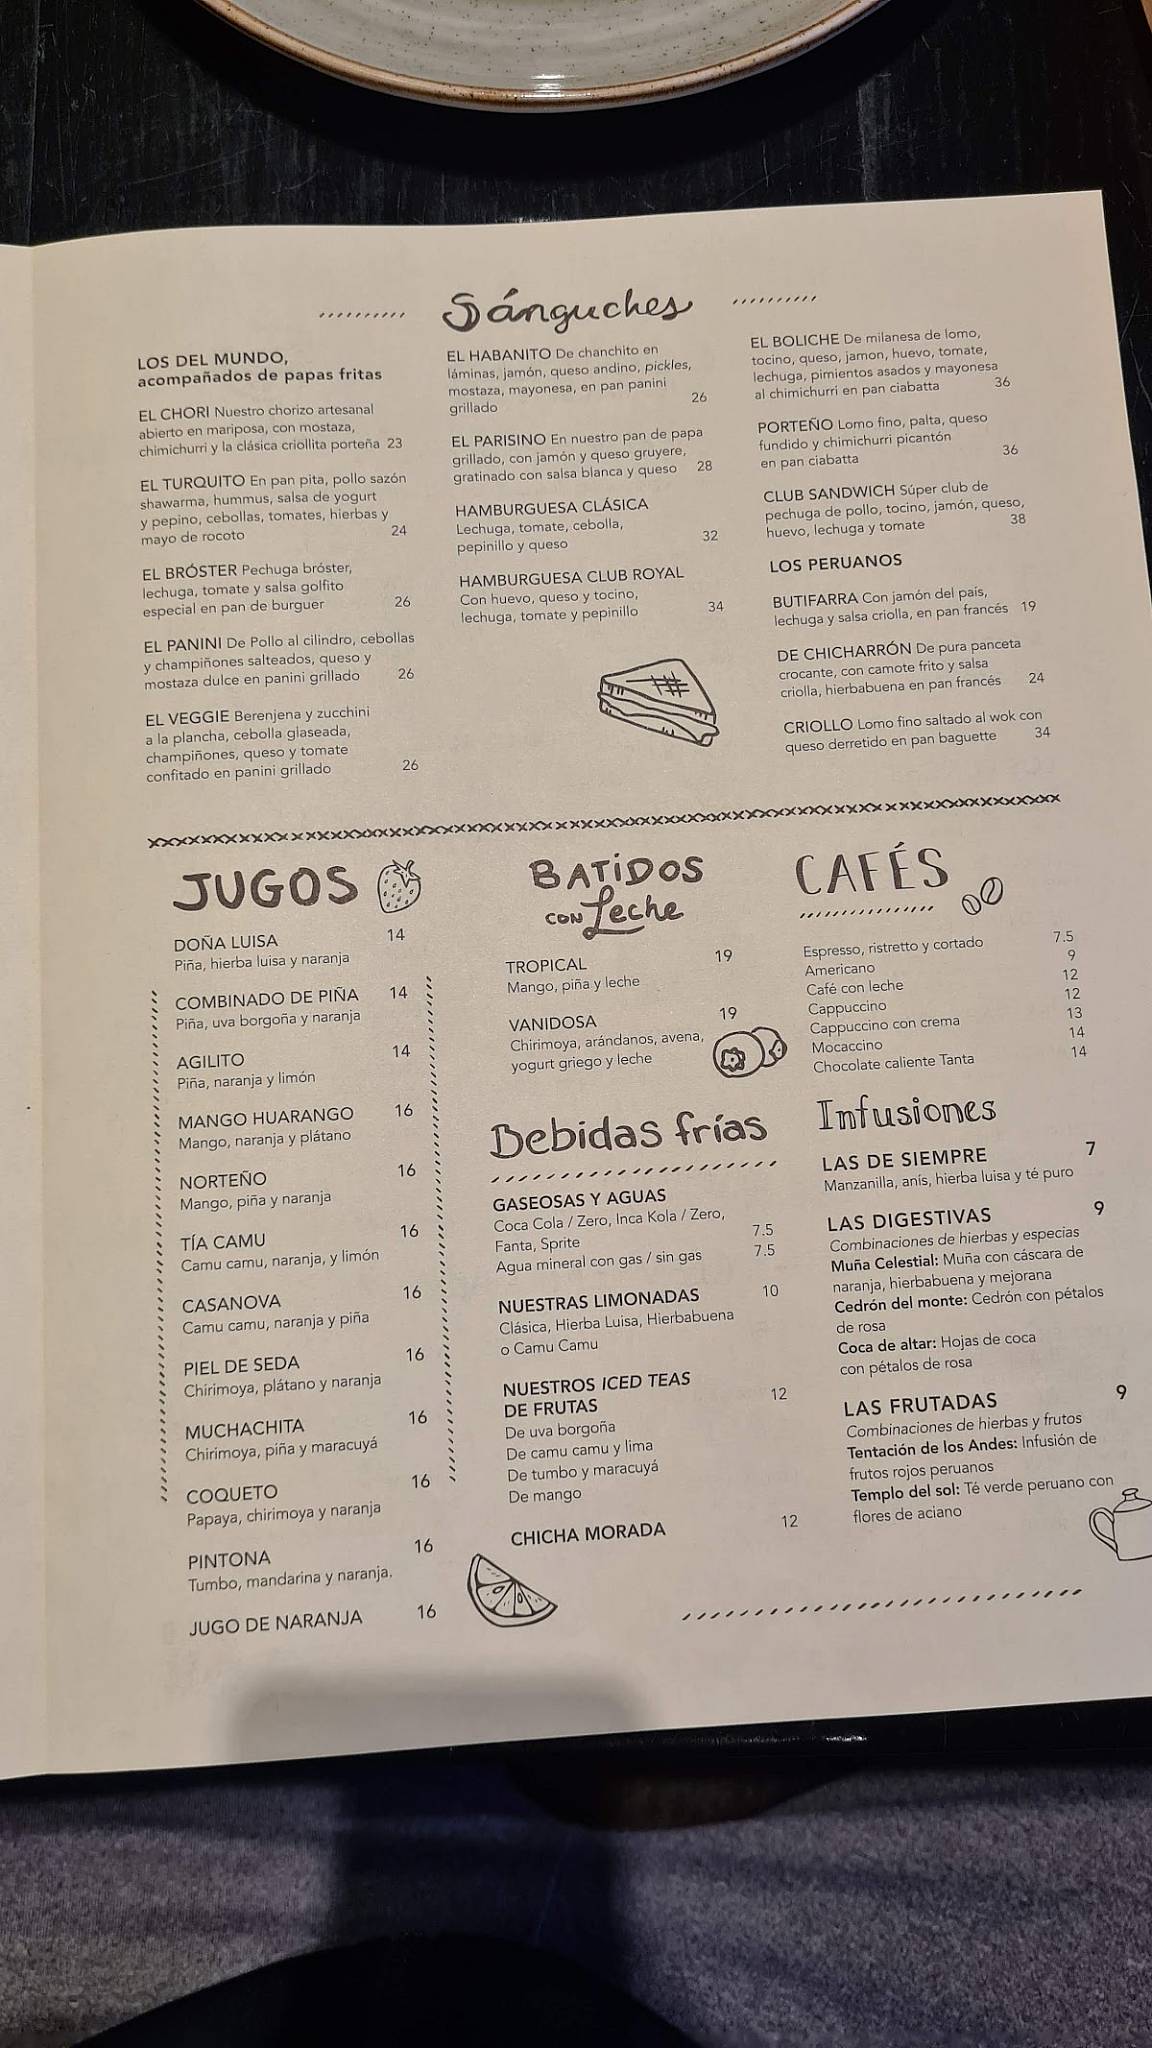 Sánguches
LOS DEL MUNDO,
acompañados de papas fritas
EL CHORI Nuestro chorizo artesanal
abierto en mariposa, con mostaza,
chimichurri y la clásica criollita porteña 23
EL TURQUITO En pan pita, pollo sazón
shawarma, hummus, salsa de yogurt
y pepino, cebollas, tomates, hierbas y
mayo de rocoto 24
EL BRÓSTER Pechuga bróster,
lechuga, tomate y salsa golfito
especial en pan de burguer 26
EL PANINI De Pollo al cilindro, cebollas
y champiñones salteados, queso y
mostaza dulce en panini grillado 26
EL VEGGIE Berenjena y zucchini
a la plancha, cebolla glaseada,
champiñones, queso y tomate
confitado en panini grillado 26
EL HABANITO De chanchito en
láminas, jamón, queso andino, pickles,
mostaza, mayonesa, en pan panini
grillado 26
EL PARISINO En nuestro pan de papa
grillado, con jamón y queso gruyere,
gratinado con salsa blanca y queso 28
HAMBURGUESA CLÁSICA
Lechuga, tomate, cebolla,
pepinillo y queso 32
HAMBURGUESA CLUB ROYAL
Con huevo, queso y tocino,
lechuga, tomate y pepinillo 34
EL BOLICHE De milanesa de lomo,
tocino, queso, jamon, huevo, tomate,
lechuga, pimientos asados y mayonesa
al chimichurri en pan ciabatta 36
PORTEÑO Lomo fino, palta, queso
fundido y chimichurri picantón
en pan ciabatta 36
CLUB SANDWICH Súper club de
pechuga de pollo, tocino, jamón, queso,
huevo, lechuga y tomate 38
LOS PERUANOS
BUTIFARRA Con jamón del país,
lechuga y salsa criolla, en pan francés 19
DE CHICHARRÓN De pura panceta
crocante, con camote frito y salsa
criolla, hierbabuena en pan francés 24
CRIOLLO Lomo fino saltado al wok con
queso derretido en pan baguette 34
JUGOS
DOÑA LUISA 14
Piña, hierba luisa y naranja
COMBINADO DE PIÑA 14
Piña, uva borgoña y naranja
AGILITO 14
Piña, naranja y limón
MANGO HUARANGO 16
Mango, naranja y plátano
NORTEÑO 16
Mango, piña y naranja
TÍA CAMU 16
Camu camu, naranja, y limón
CASANOVA 16
Camu camu, naranja y piña
PIEL DE SEDA 16
Chirimoya, plátano y naranja
MUCHACHITA 16
Chirimoya, piña y maracuyá
COQUETO 16
Papaya, chirimoya y naranja
PINTONA 16
Tumbo, mandarina y naranja.
JUGO DE NARANJA 16
BATIDOS
CON Leche
TROPICAL 19
Mango, piña y leche
VANIDOSA 19
Chirimoya, arándanos, avena,
yogurt griego y leche
Bebidas frías
GASEOSAS Y AGUAS
Coca Cola / Zero, Inca Kola / Zero,
Fanta, Sprite 7.5
Agua mineral con gas / sin gas 7.5
NUESTRAS LIMONADAS 10
Clásica, Hierba Luisa, Hierbabuena
o Camu Camu
NUESTROS ICED TEAS
DE FRUTAS 12
De uva borgoña
De camu camu y lima
De tumbo y maracuyá
De mango
CHICHA MORADA 12
CAFÉS
Espresso, ristretto y cortado 7.5
Americano 9
Café con leche 12
Cappuccino 12
Cappuccino con crema 13
Mocaccino 14
Chocolate caliente Tanta 14
Infusiones
LAS DE SIEMPRE 7
Manzanilla, anís, hierba luisa y té puro
LAS DIGESTIVAS 9
Combinaciones de hierbas y especias
Muña Celestial: Muña con cáscara de
naranja, hierbabuena y mejorana
Cedrón del monte: Cedrón con pétalos
de rosa
Coca de altar: Hojas de coca
con pétalos de rosa
LAS FRUTADAS 9
Combinaciones de hierbas y frutos
Tentación de los Andes: Infusión de
frutos rojos peruanos
Templo del sol: Té verde peruano con
flores de aciano